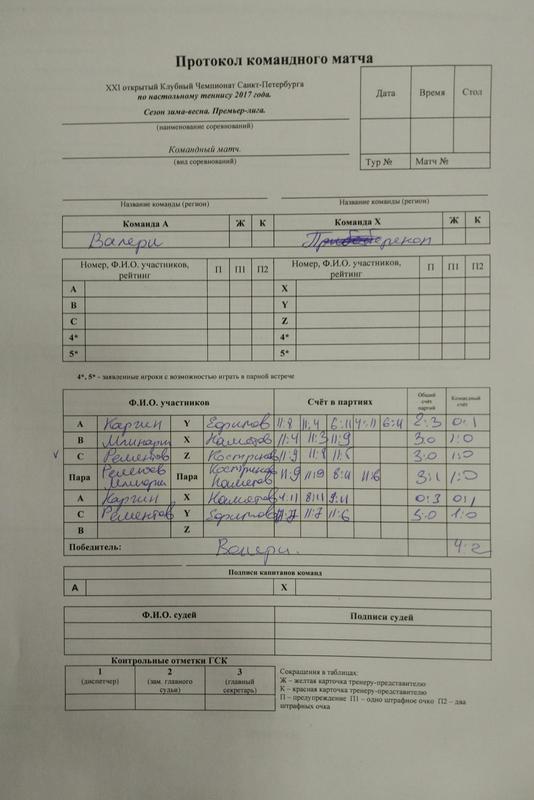 Протокол командного матча
XXI открытый Клубный Чемпионат Санкт-Петербурга
по настольному теннису 2017 года.
Сезон зима-весна. Премьер-лига.
(наименование соревнований)
Командный матч.
(вид соревнований)
Дата Время Стол
Тур № Матч №
Название команды (регион) Название команды (регион)
Команда А Ж К Команда X Ж К
Валери
Номер, Ф.И.О. участников, рейтинг П П1 П2 Номер, Ф.И.О. участников, рейтинг П П1 П2
А X
В Y
С Z
4* 4*
5* 5*
4*, 5* - заявленные игроки с возможностью играть в парной встрече
Ф.И.О. участников Счёт в партиях Общий счёт партий Командный счёт
А Каргин Y Ефимов 11:8 11:4 6:11 4:11 6:11 2:3 0:1
В X Наметов 11:4 11:3 11:9 3:0 1:0
С Рементов Z Костриков 11:9 11:8 11:5 3:0 1:0
Пара Рементов Пара Костриков Наметов 11:9 11:9 8:11 11:6 3:1 1:0
А Каргин X Наметов 4:11 8:11 9:11 0:3 0:1
С Рементов Y Ефимов 11:7 11:7 11:6 3:0 1:0
В Z
Победитель: Валери. 4:2
Подписи капитанов команд
А X
Ф.И.О. судей Подписи судей
Контрольные отметки ГСК
1 2 3
(диспетчер) (зам. главного судьи) (главный секретарь)
Сокращения в таблицах:
Ж – желтая карточка тренеру-представителю
К – красная карточка тренеру-представителю
П – предупреждение П1 – одно штрафное очко П2 – два
штрафных очка